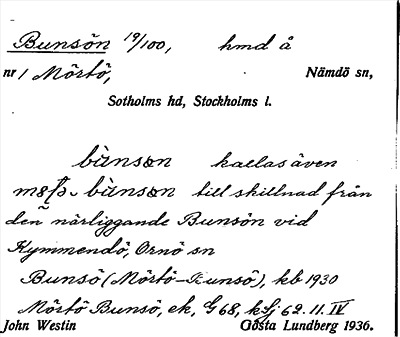 Bunsön 19/100, hmd å
nr 1 Mörtö, Nämdö sn,
Sotholms hd, Stockholms l.
bùnsɷn kallas även
bùnsɷn till skillnad från
den närliggande Bunsön vid
Kymmendö, Ornö sn
Bunsö (Mörtö-Bunsö), kb 1930
Mörtö Bunsö, ek, G68, ksj 62.11.IV
John Westin Gösta Lundberg 1936.